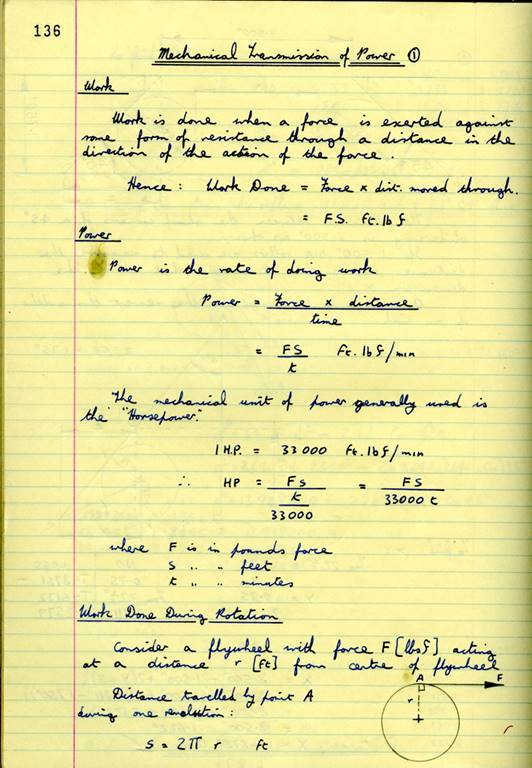 136
Mechanical Transmission of Power ①
Work
Work is done when a force is exerted against
some form of resistance through a distance in the
direction of the action of the force.
Hence : Work Done = Force × dist. moved through.
= F.S. ft. lb f
Power
Power is the rate of doing work
Power = Force × distance
time
= FS Ft. lb f/min
t
The mechanical unit of power generally used is
the "Horsepower."
1 H.P. = 33000 Ft. lb f/min
∴ HP = Fs = FS
t 33000 t
33000
where F is in pounds force
S " " feet
t " " minutes
Work Done During Rotation
Consider a flywheel with force F [lbsf] acting
at a distance r [Ft] from centre of flywheel
A F
r
Distance travelled by point A
during one revolution :
S = 2π r ft